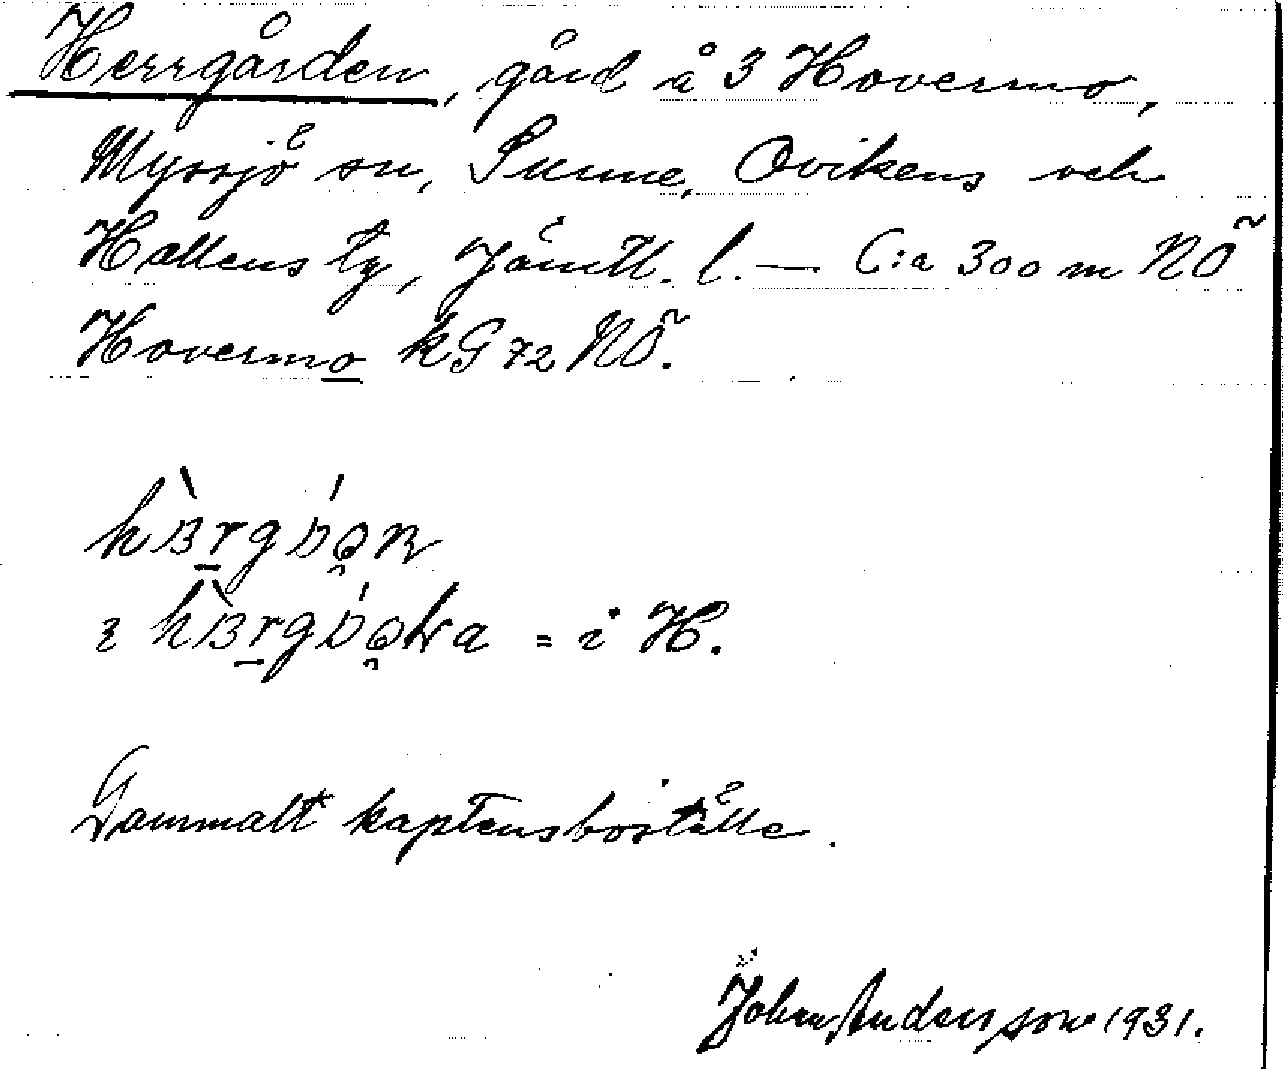 Herrgården, gård å 3 Hovermo,
Myssjö sn, Sunne, Ovikens och
Hallens tg, Jämtl. l. — C:a 300 m NÖ
Hovermo kG 72 NÖ.
= i H.
Gammalt kaptensboställe.
Johan Andersson 1931.